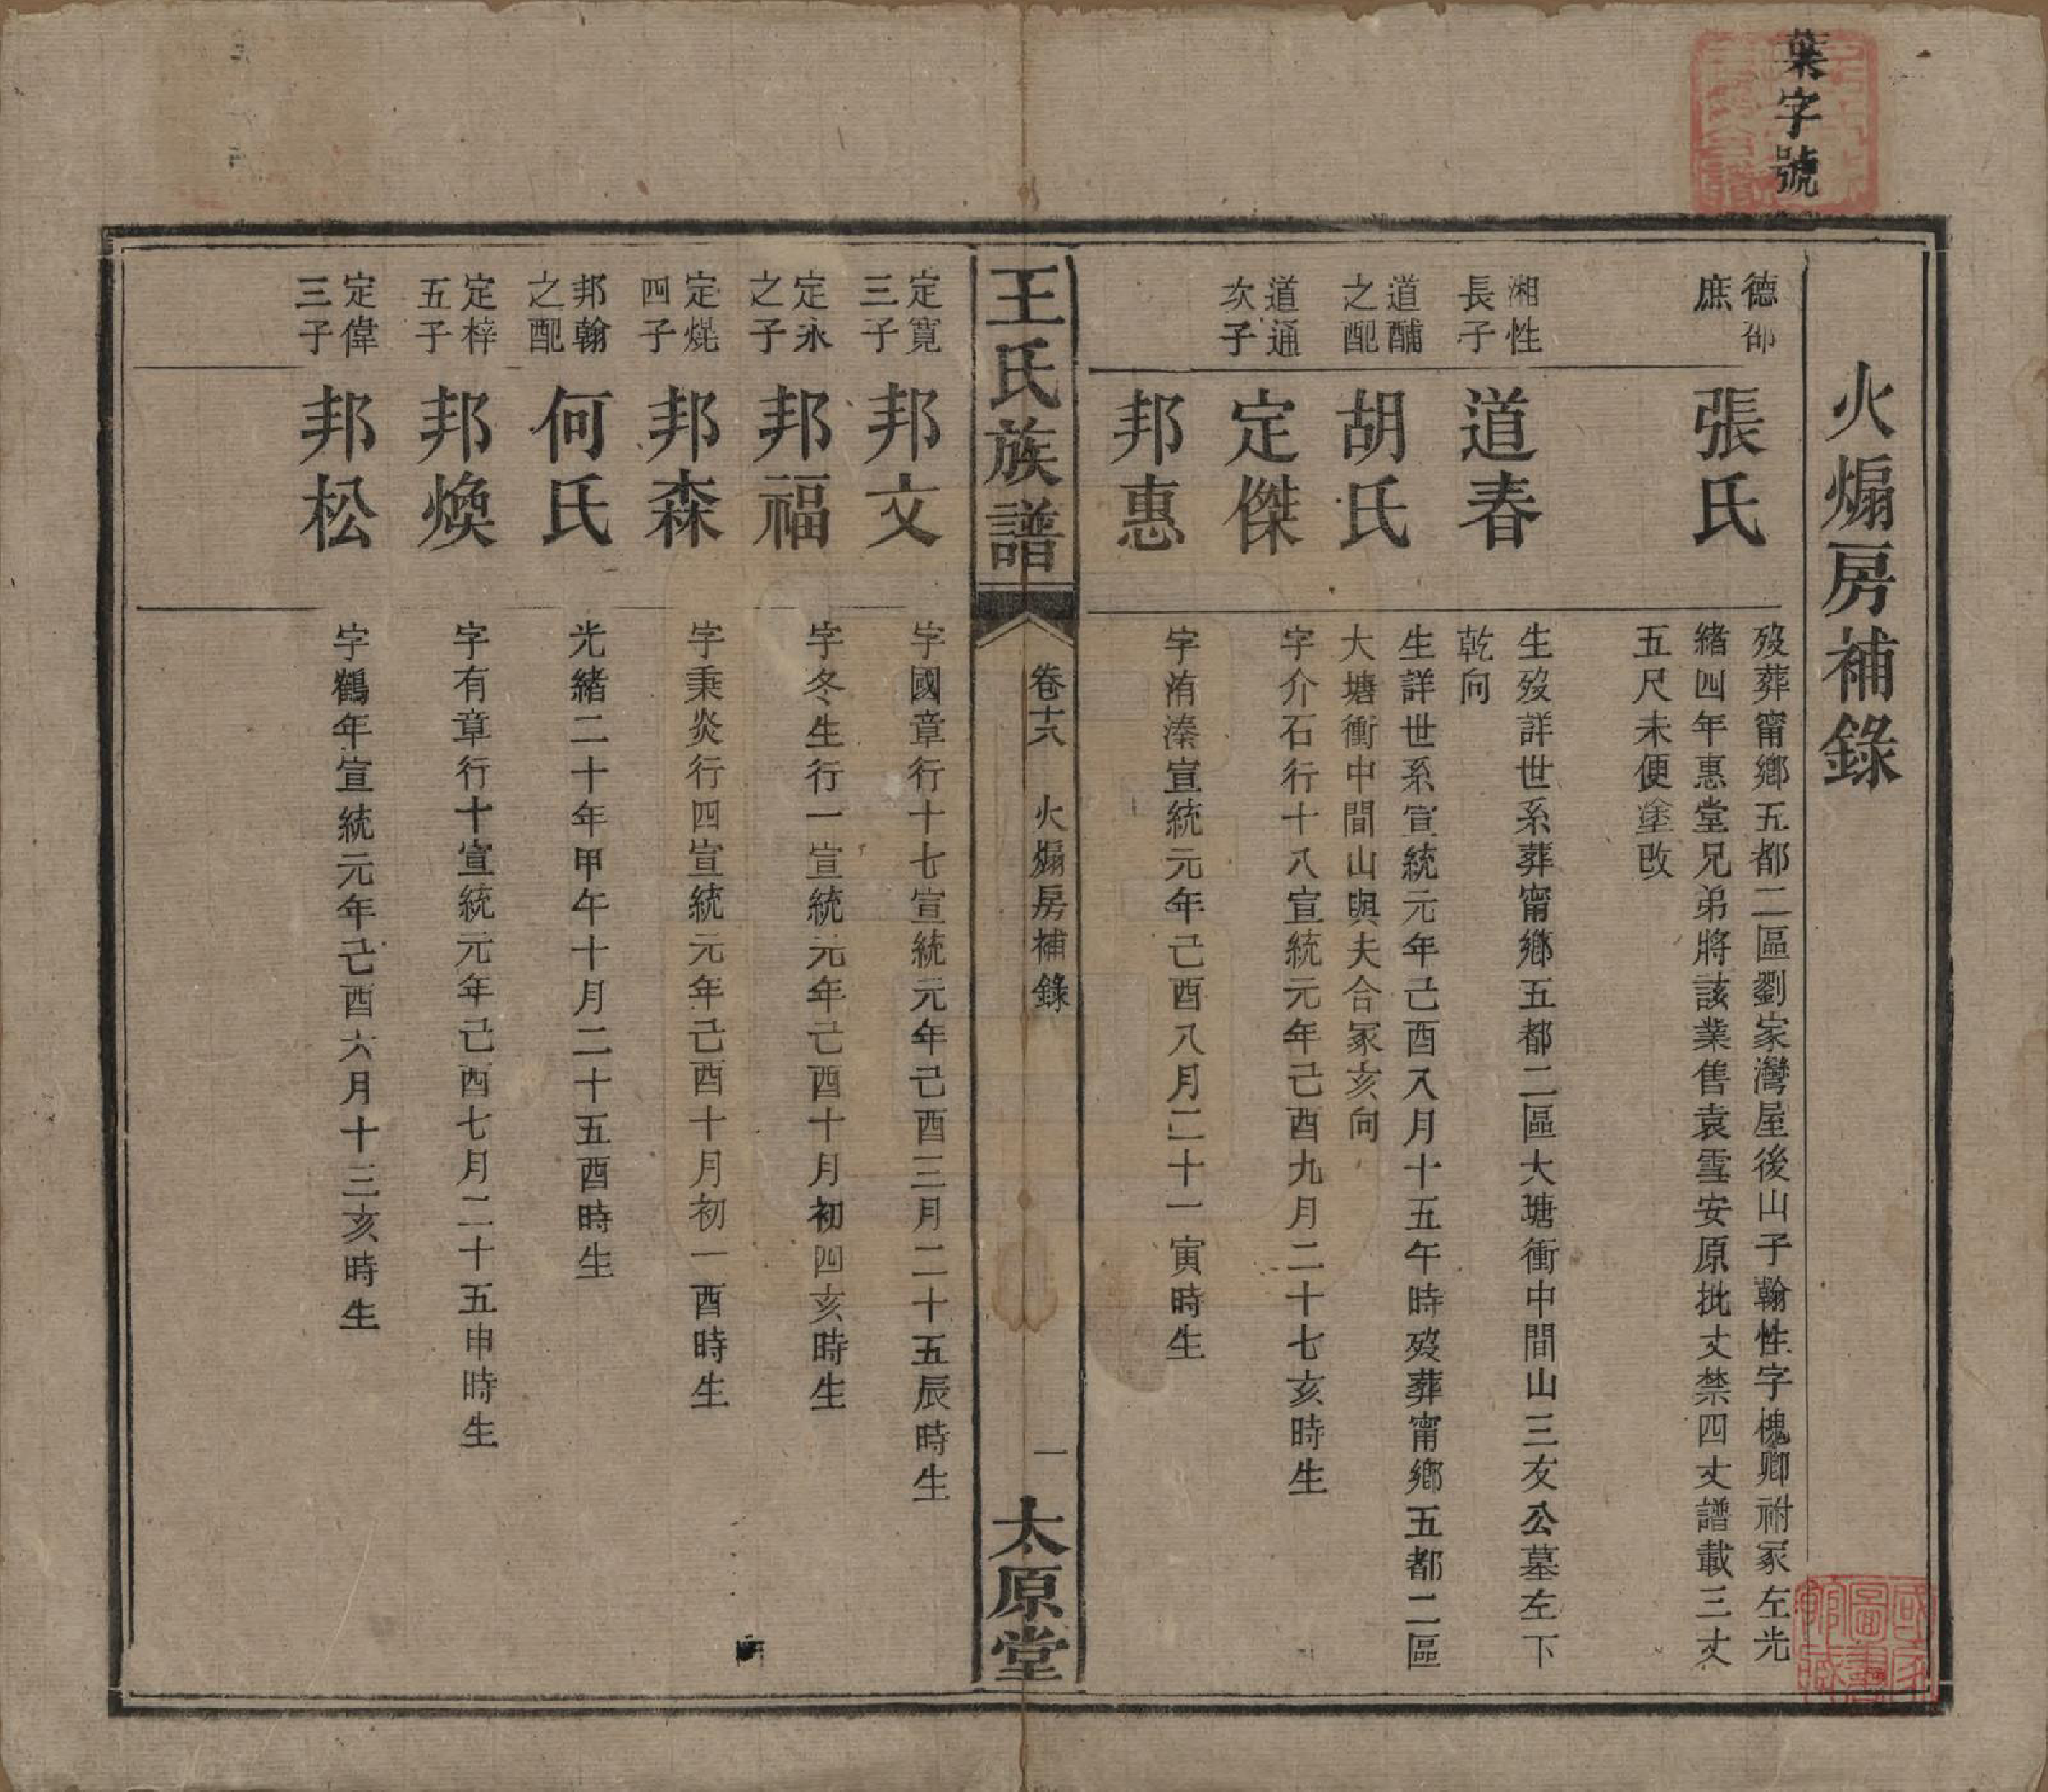 葉字號
火煽房補錄
德邵
庶
張氏
歿葬甯鄉五都二區劉家灣屋後山子翰性字槐卿祔冢左光
緒四年惠堂兄弟將該業售袁雪安原批丈禁四丈譜載三丈
五尺未便塗改
湘性
長子
道春
生歿詳世系葬甯鄉五都二區大塘衝中間山三友公墓左下
乾向
道酺
之配
胡氏
生詳世系宣統元年己酉八月十五午時歿葬甯鄉五都二區
大塘衝中間山與夫合冢亥向
道通
次子
定傑
字介石行十八宣統元年己酉九月二十七亥時生
邦惠
字洧溱宣統元年己酉八月二十一寅時生
王氏族譜
卷十六
火煽房補錄
一
太原堂
定寬
三子
邦文
字國章行十七宣統元年己酉三月二十五辰時生
定永
之子
邦福
字冬生行一宣統元年己酉十月初四亥時生
定焜
四子
邦森
字秉炎行四宣統元年己酉十月初一酉時生
邦翰
之配
何氏
光緒二十年甲午十月二十五酉時生
定梓
五子
邦煥
字有章行十宣統元年己酉七月二十五申時生
定偉
三子
邦松
字鶴年宣統元年己酉六月十三亥時生
國家
圖書
館藏